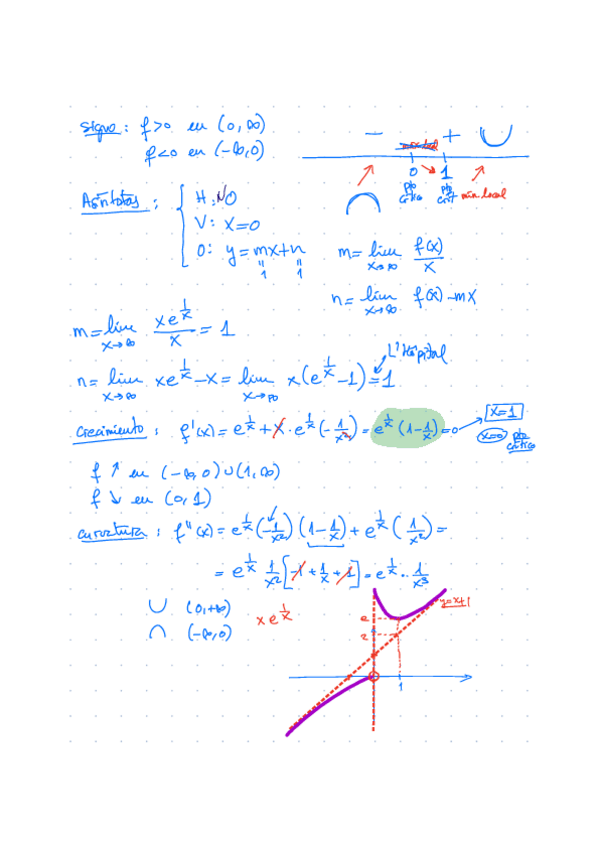 Signo: f>0 en (0,∞)
f<0 en (-∞,0)
− + ∪
0 1
pto crítico pto crít mín local
Asíntotas: H: NO
V: x=0
O: y=mx+n
1 1
m=lim x→∞ f(x)/x
n=lim x→∞ f(x)-mx
m=lim x→∞ xe^(1/x)/x = 1
L'Hôpital
n=lim x→∞ xe^(1/x)-x = lim x→∞ x(e^(1/x)-1)=1
Crecimiento: f'(x)=e^(1/x)+x·e^(1/x)(-1/x²)=e^(1/x)(1-1/x)=0
x=1
x=0 pto crítico
f ↑ en (-∞,0)∪(1,∞)
f ↘ en (0,1)
curvatura: f''(x)=e^(1/x)(-1/x²)(1-1/x)+e^(1/x)(1/x²)=
=e^(1/x) 1/x² [-1+1/x+1]=e^(1/x)·1/x³
∪ (0,+∞)
∩ (-∞,0)
xe^(1/x)
y=x+1
e
2
1